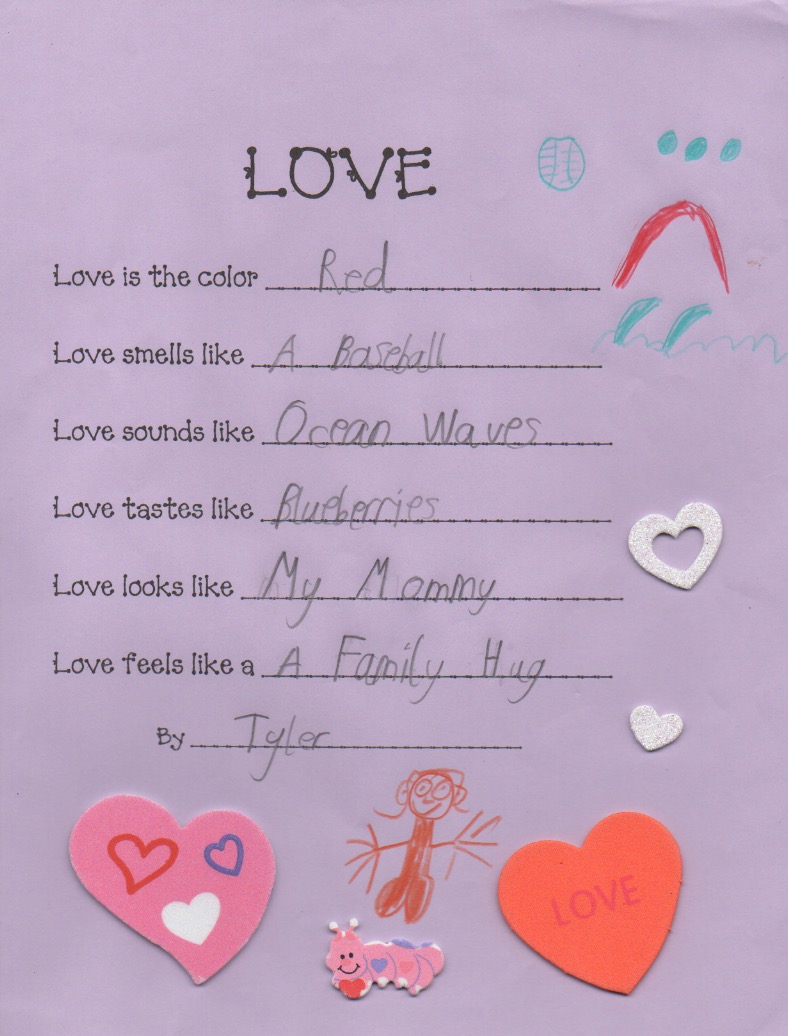 LOVE
Love is the color Red
Love smells like A Baseball
Love sounds like Ocean Waves
Love tastes like Blueberries
Love looks like My Mommy
Love feels like a A Family Hug
By Tyler
LOVE